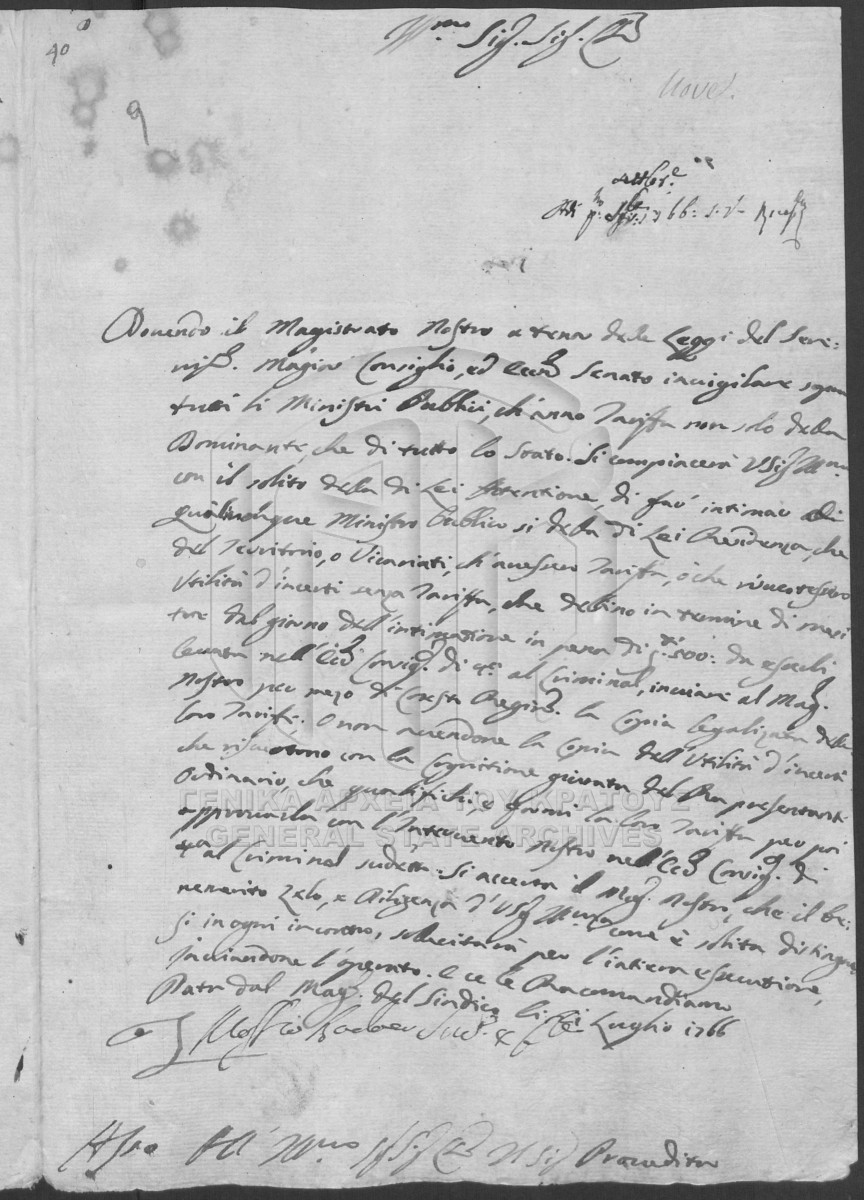 40
Ill.mo Sig. Sig.
9
Adi p.mo 1766: s.v.
Dovendo il Magistrato Nostro a tenor delle Leggi del Sere:
niss. Maggior Consiglio, ed Ecc. Senato invigilare sopra
tutti li Ministri Pubblici, ch'anno Tariffa non solo della
Dominante, che di tutto lo Stato. Si compiacerà VSig. Ill.ma
con il solito della di Lei Attentione, di far intimar
qualunque Ministro Publico si della di Lei Residenza, che
del Territorio, o Vicariati, ch'avessero Tariffa, ò che riscotessero
Utilità d'incerti senza Tariffa, che debbino in termine di mesi
tre dal giorno dell'intimazione in pena di 500: da esserli
levata nell'Ecc. Consig. di 40 al Criminal, inviare al Mag.
Nostro per mezo di Cotesto Reggim. la Copia legalizata della
loro Tariffa; O non avendone la Copia dell'Utilità d'incerti
che riscuotono con la Cognitione giurata del
Ordinario, che qualifichi, e formi la loro Tariffa per poi
approvarla con l'Intervento Nostro nell'Ecc. Consig. di
40 al Criminal sudetto. Si accerta il Mag. Nostro, che il be:
nemerito Zelo, e Diligenza d'VSig. Ill.ma come è solita distinguer
si in ogni incontro, sollecitarà per l'intiera essecutione,
inviandone l'operato. E ce le Raccomandiamo
Data dal Mag. del Sindico li Luglio 1766
All' Ill.mo Sig. Sig. Il Sig. Proveditor
ΓΕΝΙΚΑ ΑΡΧΕΙΑ ΤΟΥ ΚΡΑΤΟΥΣ
GENERAL STATE ARCHIVES